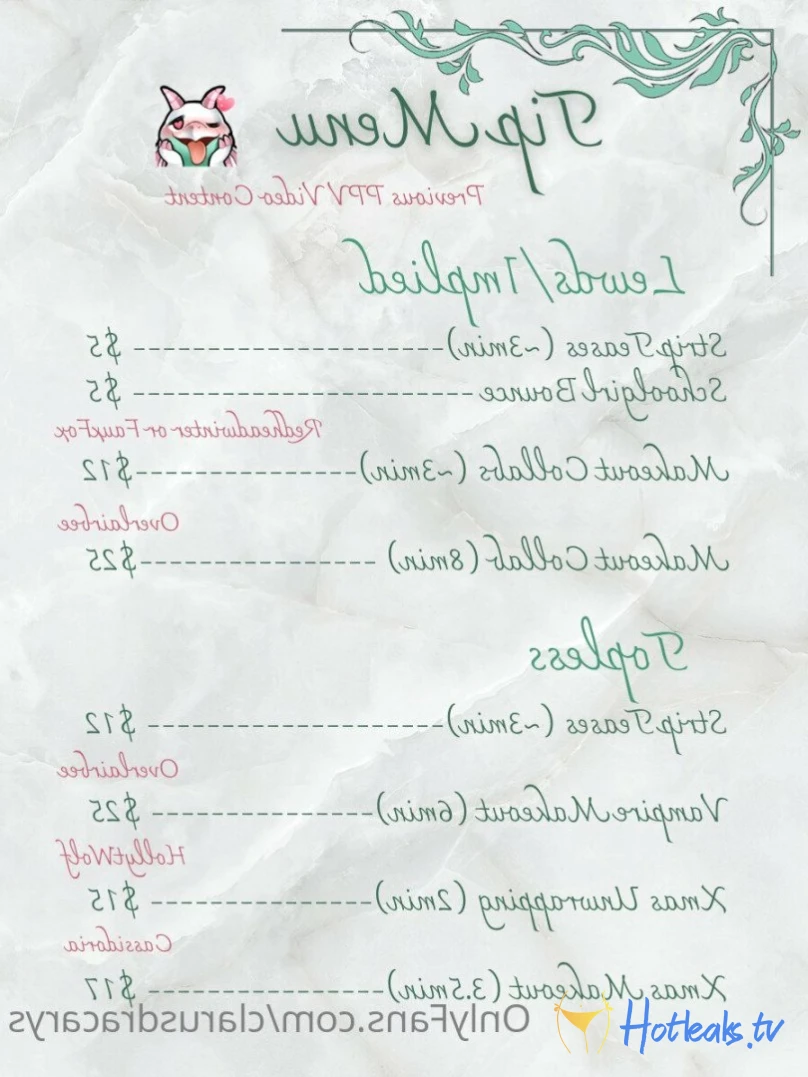 Tip Menu
Previous PPV Video Content
Lewds/Implied
Strip Teases (~3min) --------------------- $5
Schoolgirl Bounce ----------------------- $5
Redheadwinter or FauxFox
Makeout Collabs (~3min)---------------$12
Overlairbee
Makeout Collab (8min) ----------------$25
Topless
Strip Teases (~3min)-------------------- $12
Overlairbee
Vampire Makeout (6min)--------------- $25
HollytWolf
Xmas Unwrapping (2min)--------------- $15
Cassidoria
Xmas Makeout (3.5min)---------------- $17
OnlyFans.com/clarusdracarys
Hotleaks.tv